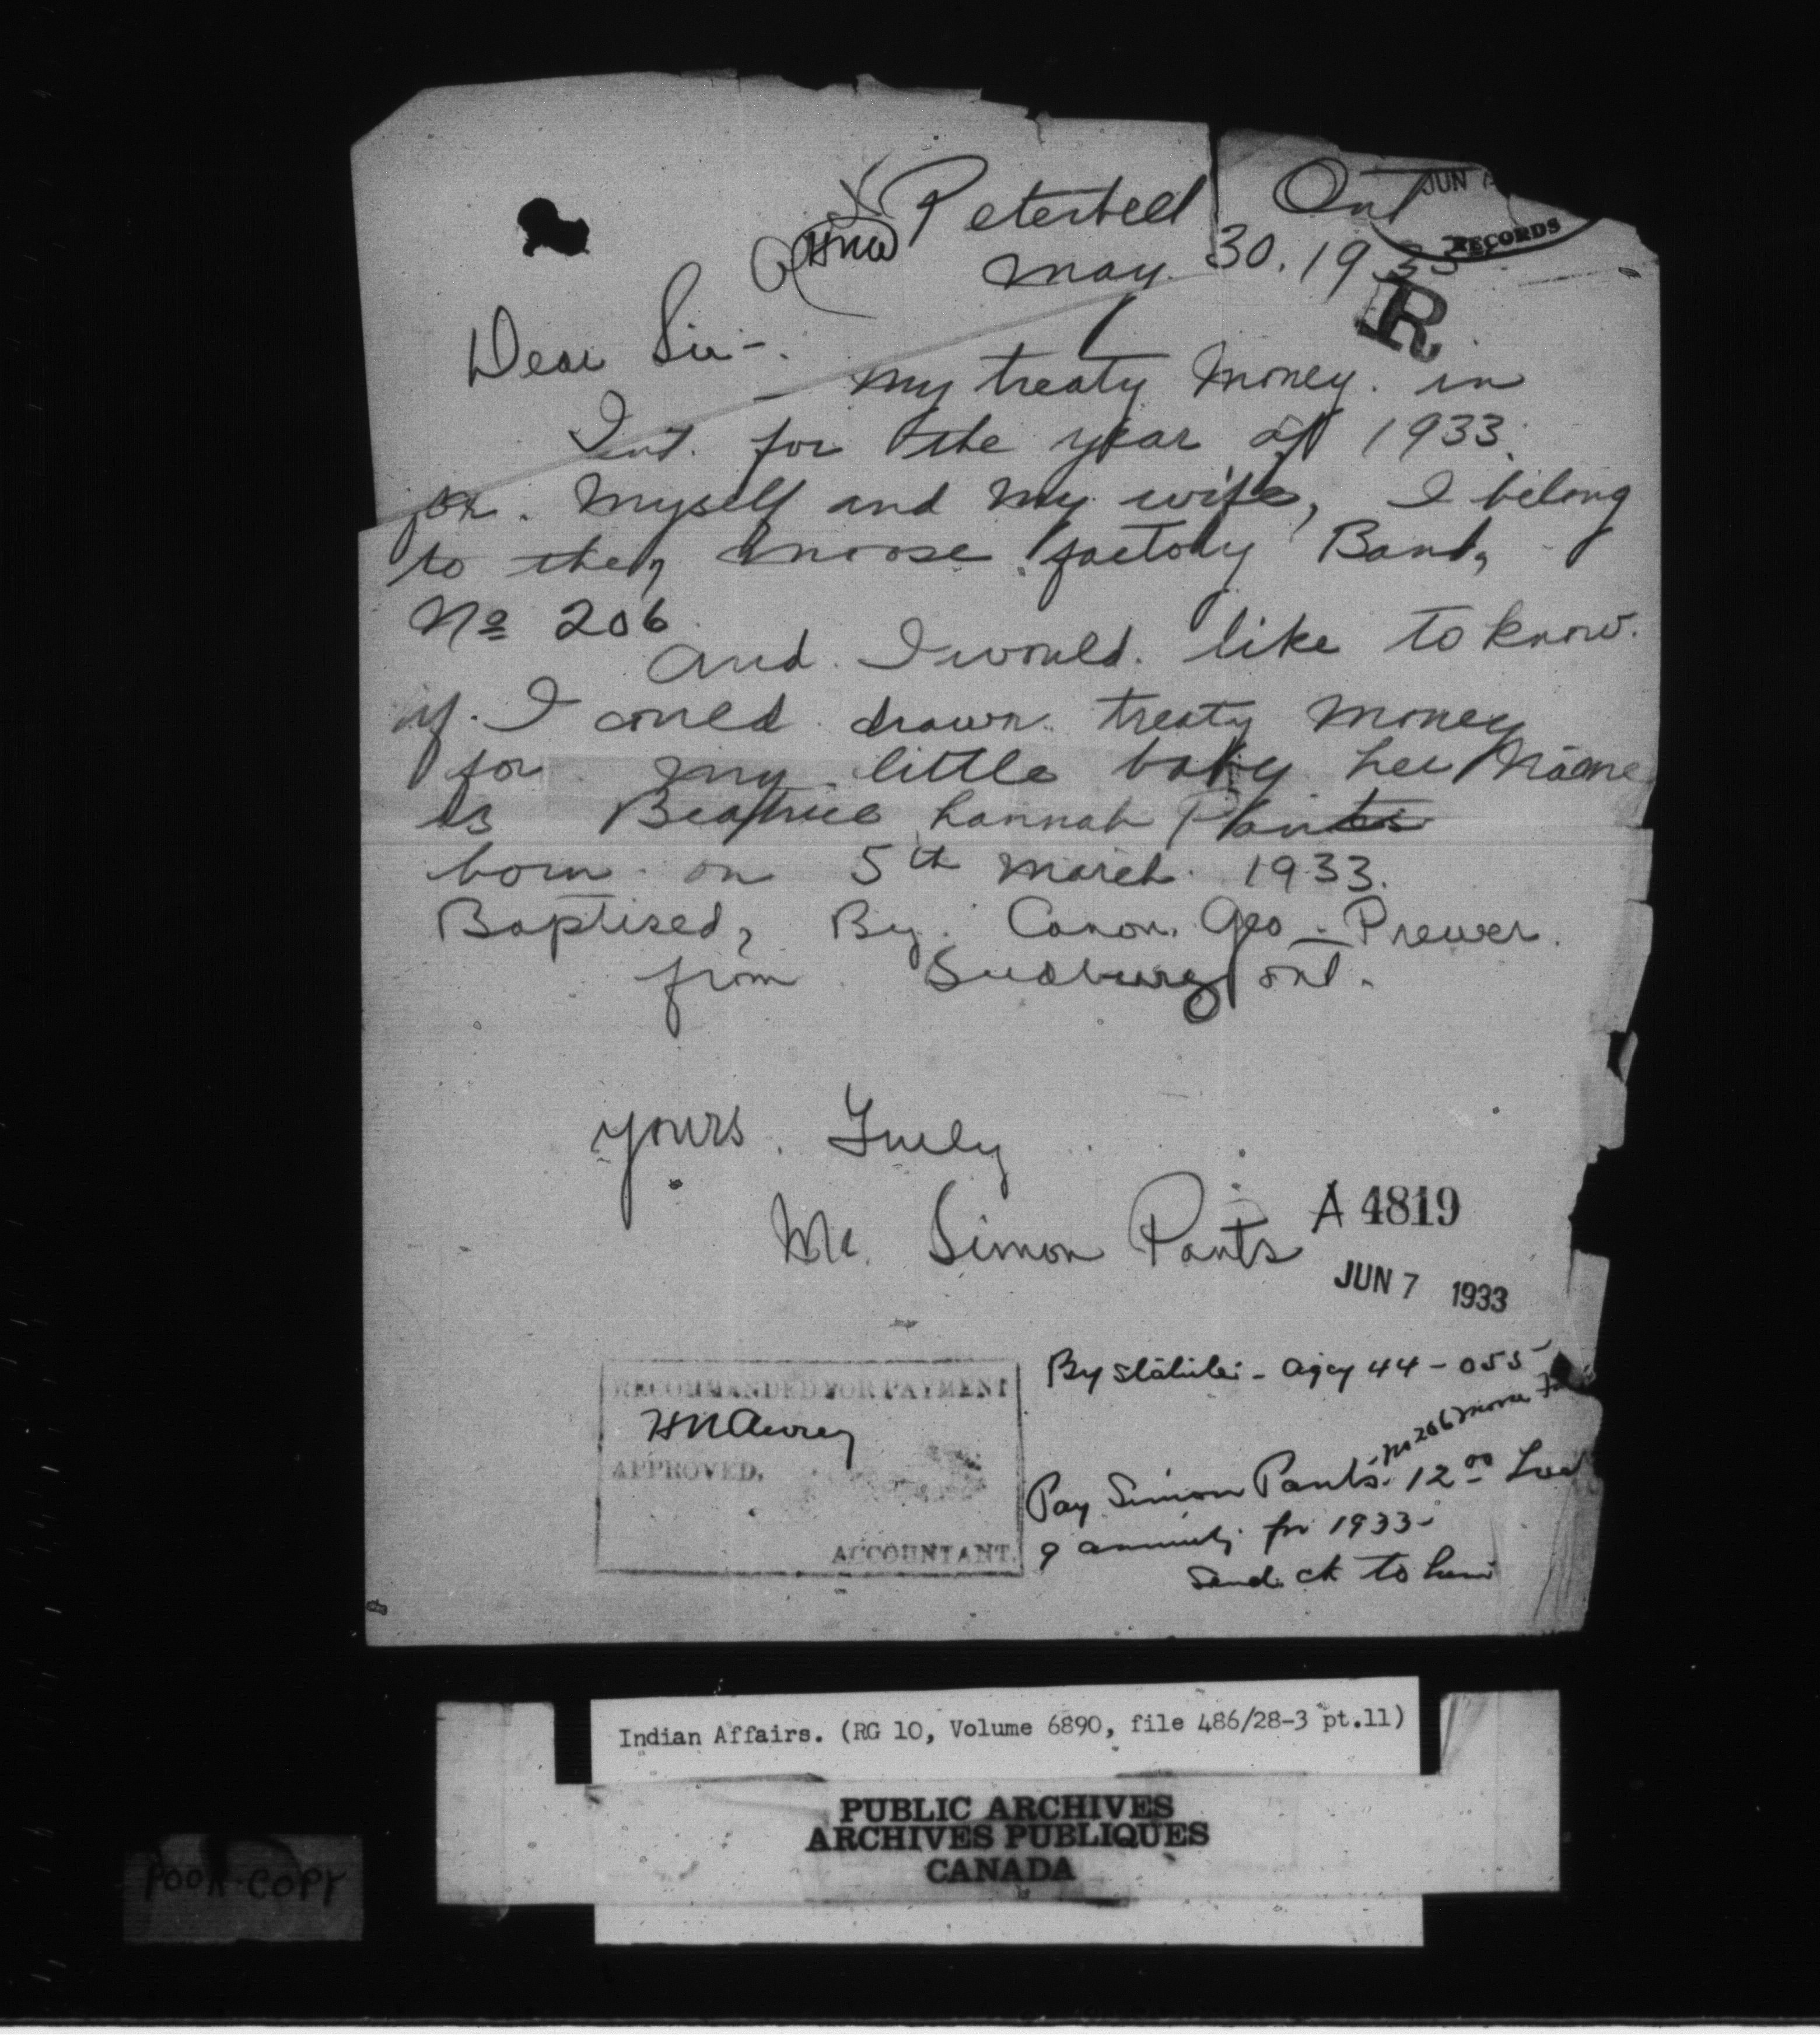 Peterbell Ont
JUN
RECORDS
HMA
May. 30. 1933
R
Dear Sir-.
my treaty money. in
Int. for the year of 1933.
for. Myself and my wife, I belong
to the, moose factory Band,
No 206
and. I would. like to know.
if. I could drawn. treaty money
for my little baby her name
is Beatrice hannah Pants
born on 5th March 1933.
Baptised, By. Canon. Geo. Prewer.
from Sudbury ont.
yours. Truly
Mr. Simon Pants
A 4819
JUN 7 1933
By statute - Agcy 44-055
No 206 Moose
RECOMMANDED FOR PAYMENT
HNAwrey
APPROVED,
ACCOUNTANT.
Pay Simon Pants. 12.00
annuity for 1933-
Send. ck to him
Indian Affairs. (RG 10, Volume 6890, file 486/28-3 pt.11)
PUBLIC ARCHIVES
ARCHIVES PUBLIQUES
CANADA
POOR COPY